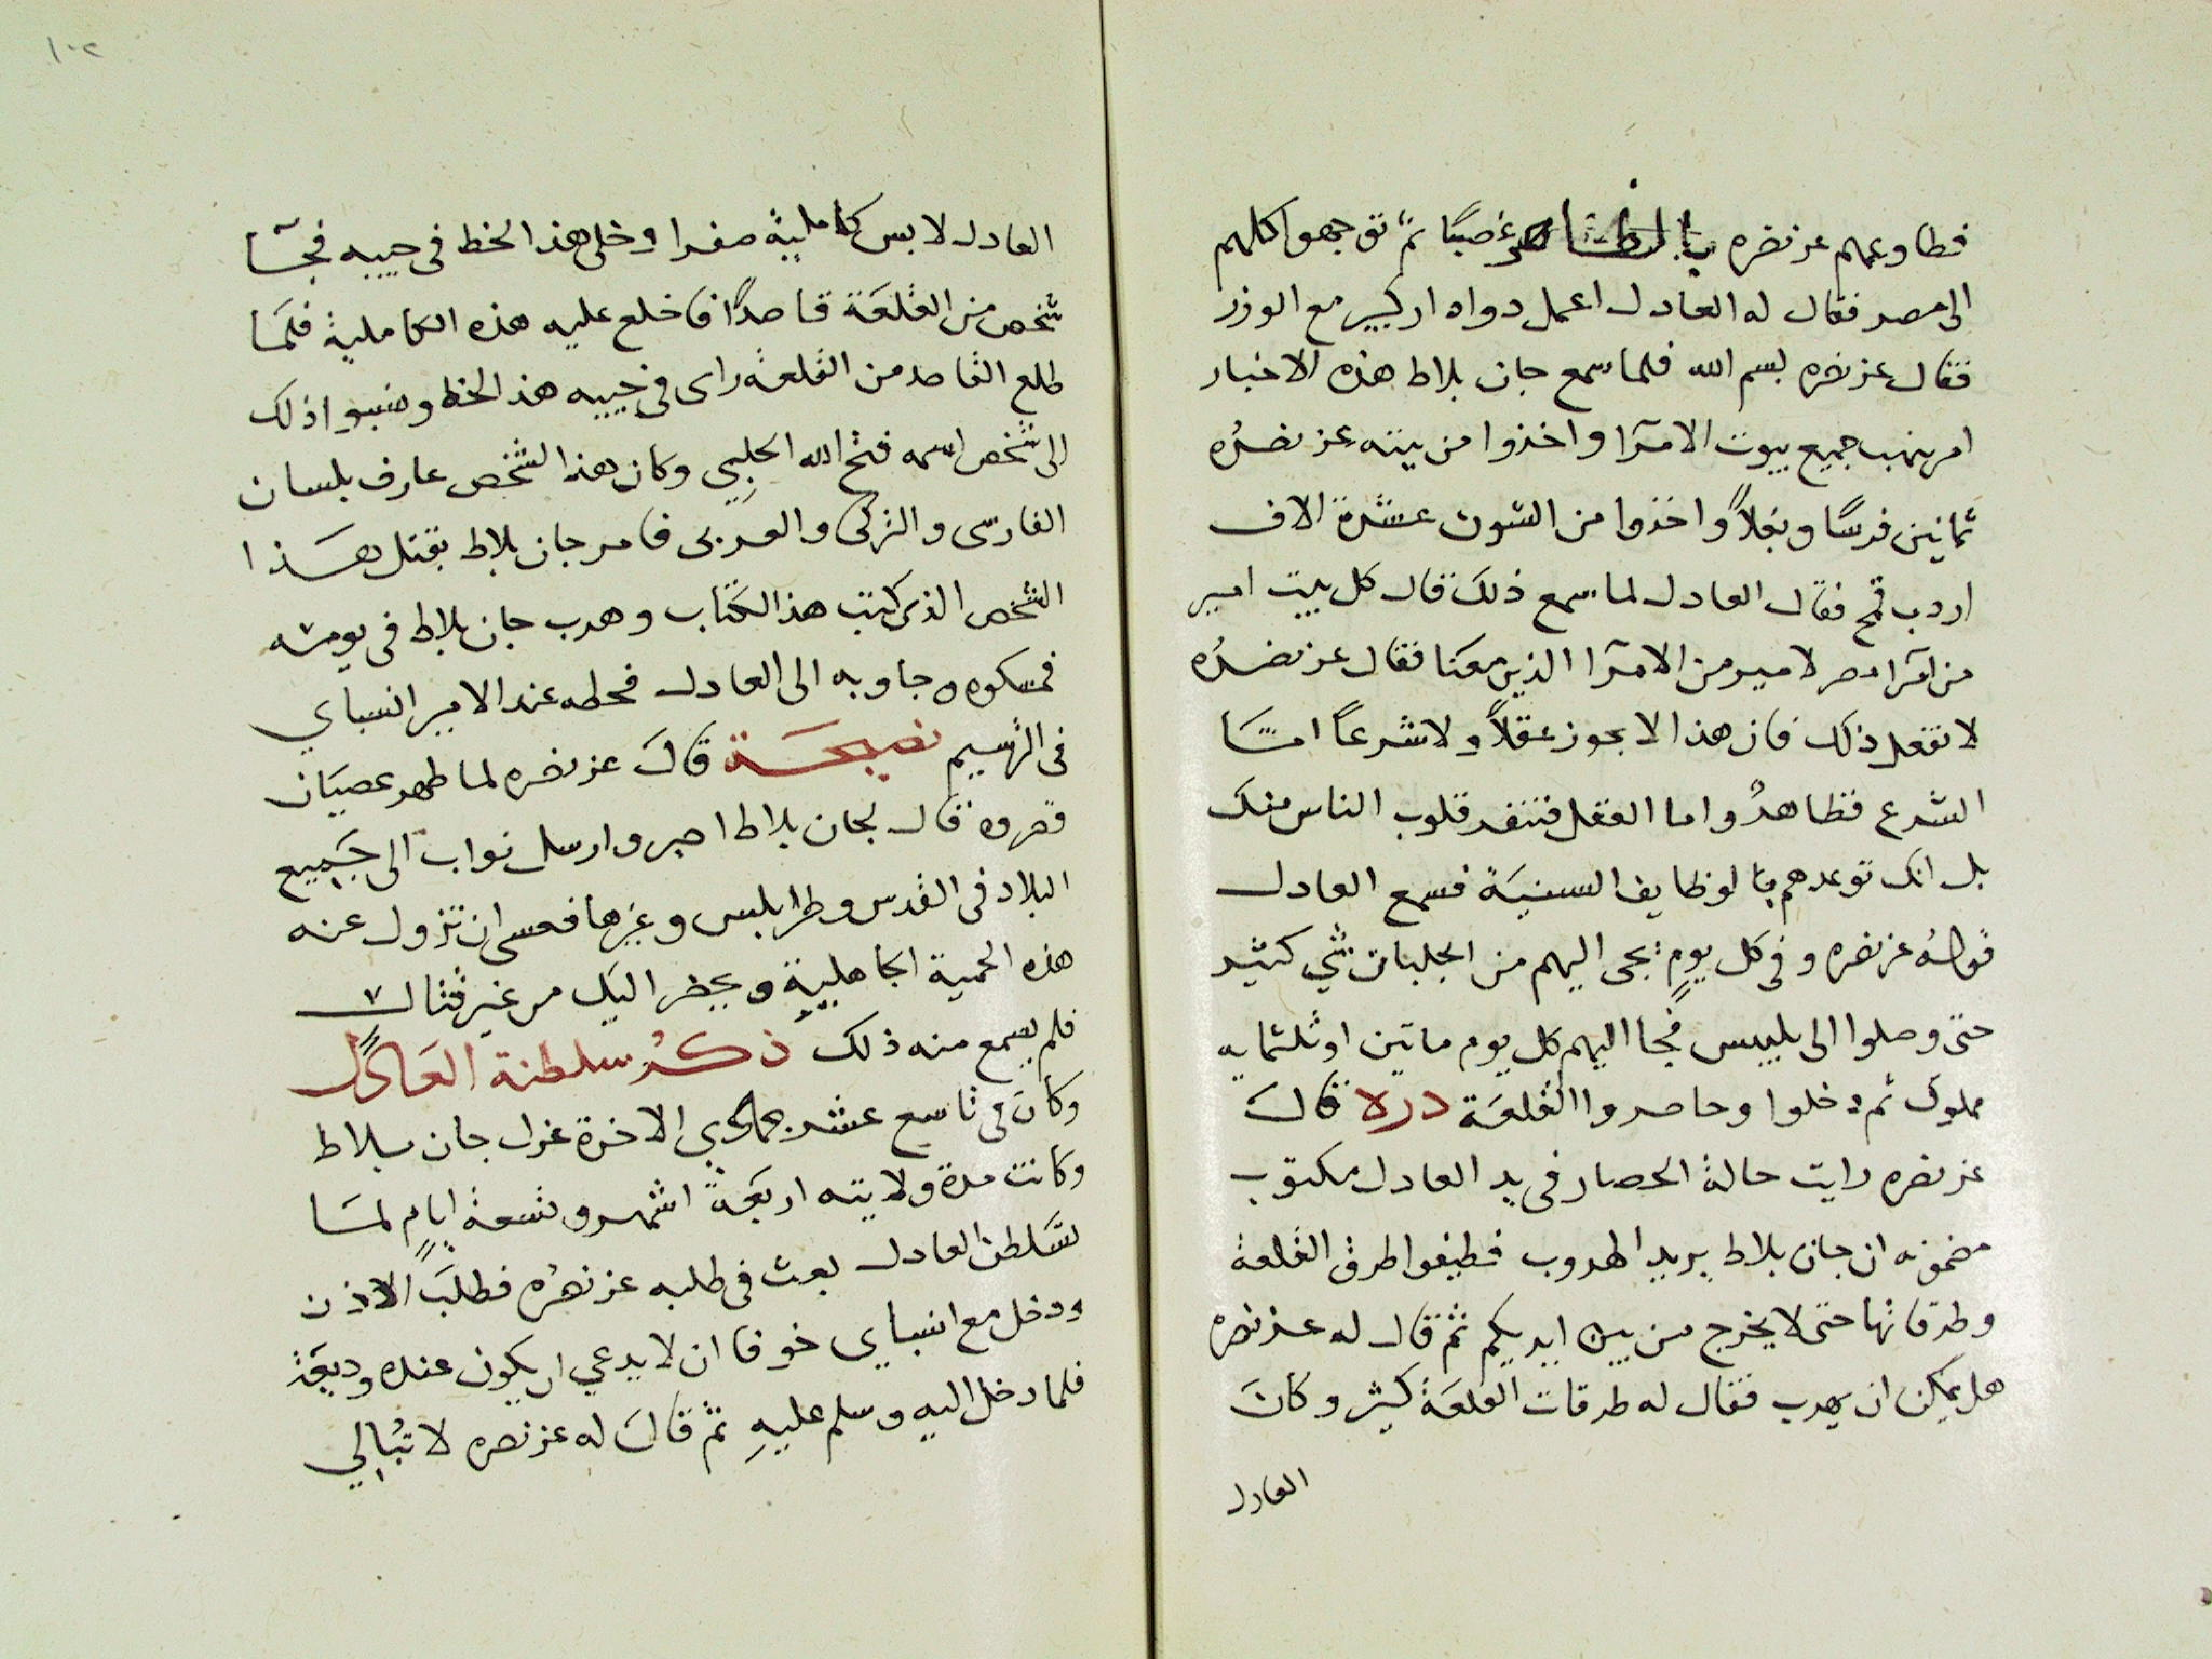 فطاوعهم عز نصره بالظاهر غصبًا ثم توجهوا كلهم
الى مصر فقال له العادل اعمل دوادار كبير مع الوزر
فقال عز نصره بسم الله فلما سمع جان بلاط هذه الاخبار
امر بنهب جميع بيوت الامرآ واخذوا من بيته عز نصرُه
ثمانين فرسًا وبغلاً واخذوا من الشون عشرة الاف
اردب قمح فقال العادل لما سمع ذلك قال كل بيت امير
من امرآ مصر لامير من الامرآ الذين معنا فقال عز نصرُه
لا تفعل ذلك فان هذا لا يجوز عقلاً ولا شرعاً امّا
الشرع فظاهرٌ واما العقل فتنفر قلوب الناس منك
بل انك توعدهم بالوظايف السنيَة فسمع العادل
قولهُ عز نصره وفى كل يومٍ يجى اليهم من الجلبان شي كثير
حتى وصلوا الى بلبيس فجا اليهم كل يوم ماتين او ثلثمايه
مملوك ثم دخلوا وحاصروا القلعَة دره قالَ
عز نصره رايت حالة الحصار فى يد العادل مكتوب
مضمونه ان جان بلاط يريد الهروب فطيفوا طرق القلعة
وطرقاتها حتى لا يخرج من بين ايديكم ثم قال له عز نصره
هل يمكن ان يهرب فقال له طرقات القلعَة كثير وكانَ
العادل
١٠٢
العادل لابس كامليهٔ صفرا وخلى هذا الخط فى جيبه فجآ
شخص من القلعَة قاصدًا فاخلع عليه هذه الكاملية فلمّا
طلع القاصد من القلعة راى فى جيبه هذا الخط ونسبوا ذلك
الى شخص اسمه فتح الله الحلبِي وكان هذا الشخص عارف بلسان
الفارسى والتركى والعربى فامر جان بلاط بقتل هَذا
الشخص الذى كتب هذا الكتاب وهرب جان بلاط فى يومئه
فمسكوه وجاو به الى العادل فحطه عند الامير انسباي
فى الترسيم نصيحَة قالَ عز نصره لما ظهر عصيَان
قصروه قال لجان بلاط اصبر وارسل نواب الى جَميع
البلاد فى القدس وطرابلس وغيرها فعسى ان تزول عنه
هذه الحمية الجاهليةِ ويحضر اليك من غير قتال
فلم يسمع منه ذلك ذكرُ سلطنة العَادل
وكانَ فى تاسع عشر جمادي الاخرة عزل جان بلاط
وكانت مدة ولايته اربعَةً اشهر وتسعة ايامٍ لمّا
تسَلطن العادل بعث فى طلبه عز نصرُه فطلبَ الاذن
ودخل مع انسباي خوفا ان لا يدعي ان يكون عنده وديعَة
فلما دخل اليهِ وسلم عليهِ ثم قالَ له عز نصره لا تُبالي